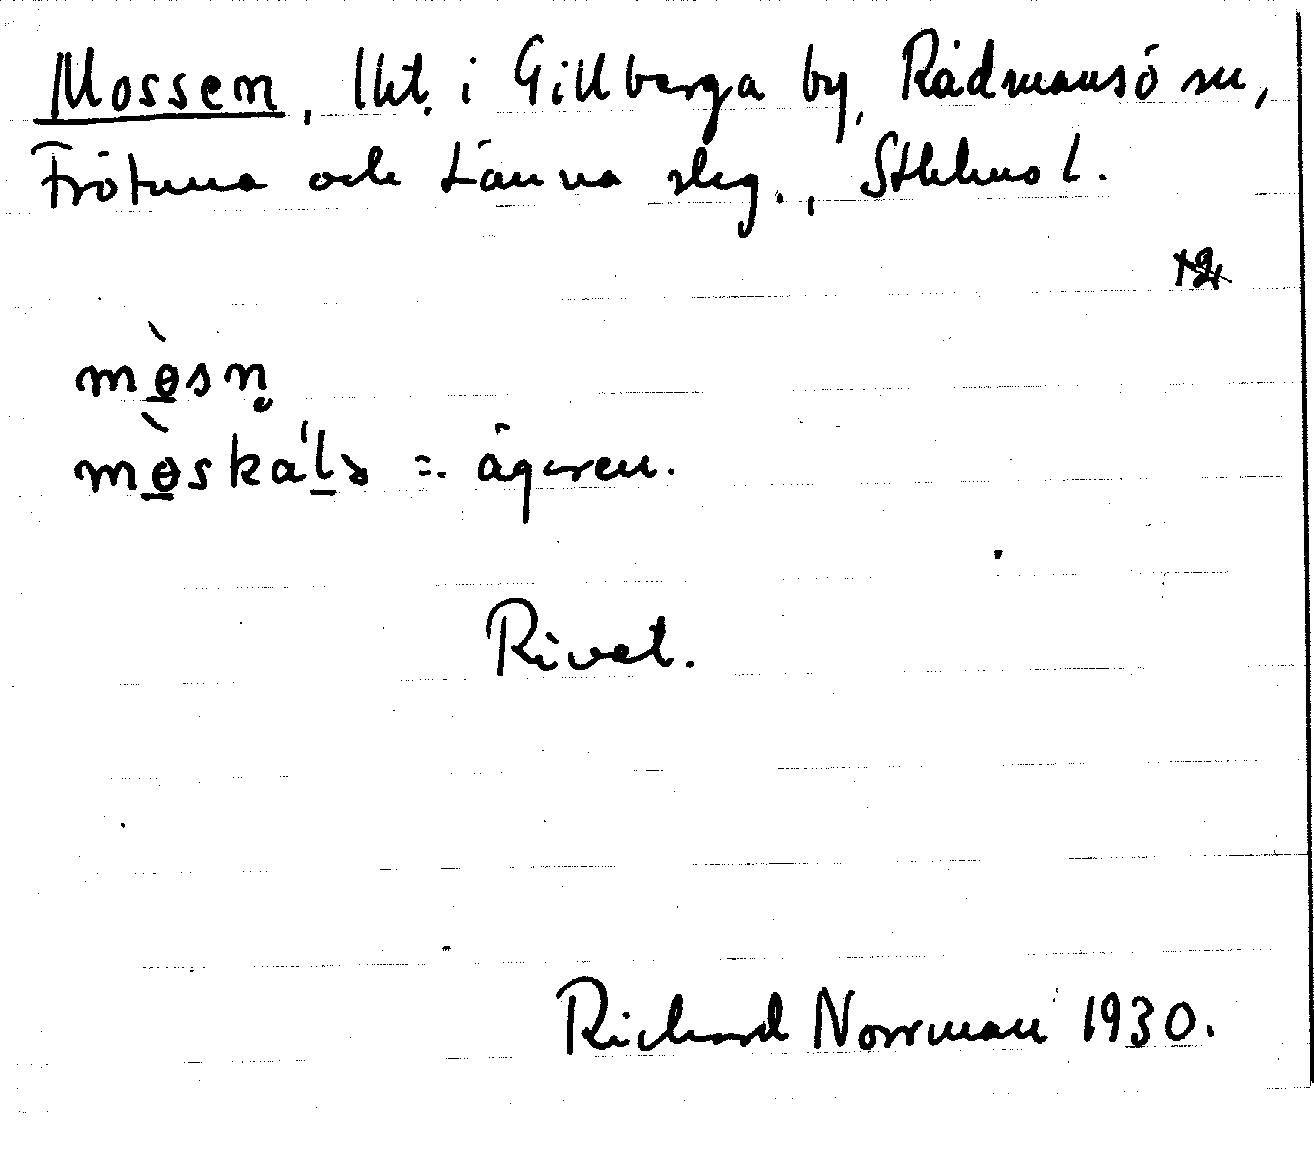 Mossen, lht. i Gillberga by, Rådmansö sn,
Frötuna och Länna slg., Sthlms l.
12
mɵ̀sn̥
mɵ̀skáls = ägaren.
Rivet.
Richard Norrman 1930.